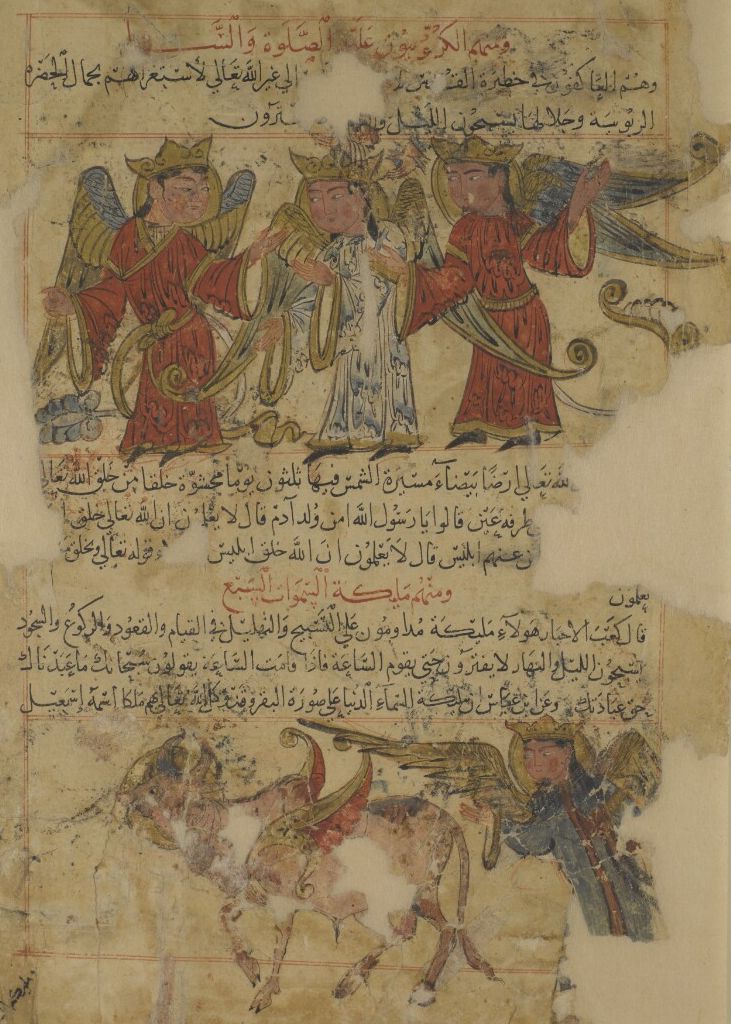 ومنهم الكروبيون عليهم الصلوة والسلام
وهم العاكفون في حظيرة القدس الى غير الله تعالى لاستغراقهم بجمال الحضرة
الربوبية وجلالها يسبحون الليل و يفترون
لله تعالى ارضا بيضاء مسيرة الشمس فيها ثلثون يوما محشوة خلقا من خلق الله تعالى
طرفة عين قالوا يا رسول الله امن ولد آدم قال لا يعلمون ان الله تعالى خلق
عنهم ابليس قال لا يعلمون ان الله خلق ابليس قوله تعالى ويخلق
يعلمون
ومنهم مليكة السموات السبع
قال كعب الاحبار هولاء مليكة مداومون على التسبيح والتهليل في القيام والقعود والركوع والسجود
يسبحون الليل والنهار لا يفترون حتى يقوم الساعة فاذا قامت الساعة يقولون سبحانك ما عبدناك
حق عبادتك وعن ابن عباس ان مليكة السماء الدنيا على صورة البقر وقد وكل الله تعالى بهم ملكا اسمه اسمعيل